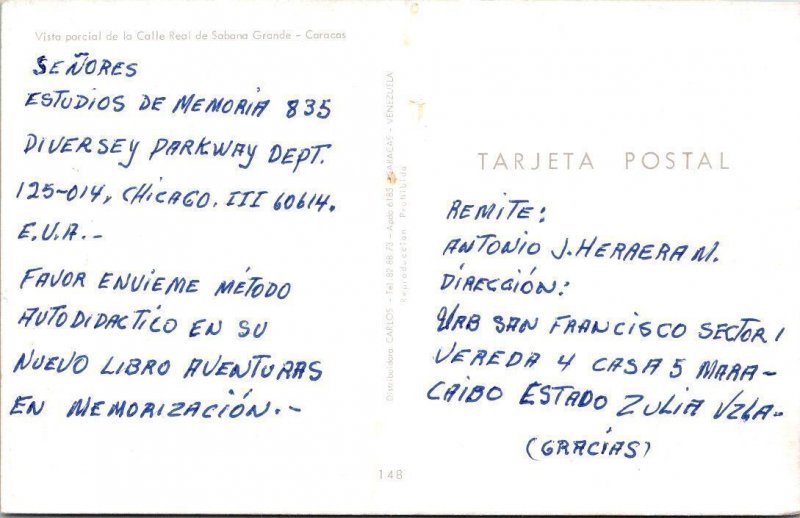 Vista parcial de la Calle Real de Sabana Grande - Caracas
SEÑORES
ESTUDIOS DE MEMORIA 835
DIVERSEY PARKWAY DEPT.
125-014, CHICAGO, III 60614.
E.U.A.-
FAVOR ENVIEME MÉTODO
AUTODIDACTICO EN SU
NUEVO LIBRO AVENTURAS
EN MEMORIZACIÓN.-
Distribuidora CARLOS - Tel. 82.88.73 - Apdo 6185 - CARACAS - VENEZUELA
Reproduccion Prohibida
148
TARJETA POSTAL
REMITE:
ANTONIO J. HERRERA M.
DIRECCIÓN:
URB SAN FRANCISCO SECTOR 1
VEREDA 4 CASA 5 MARA-
CAIBO ESTADO ZULIA VZLA-
(GRACIAS)